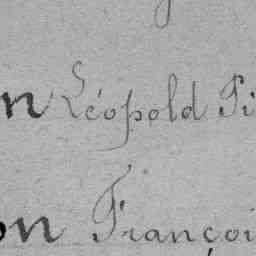 n Léopold Pi
on Françoi